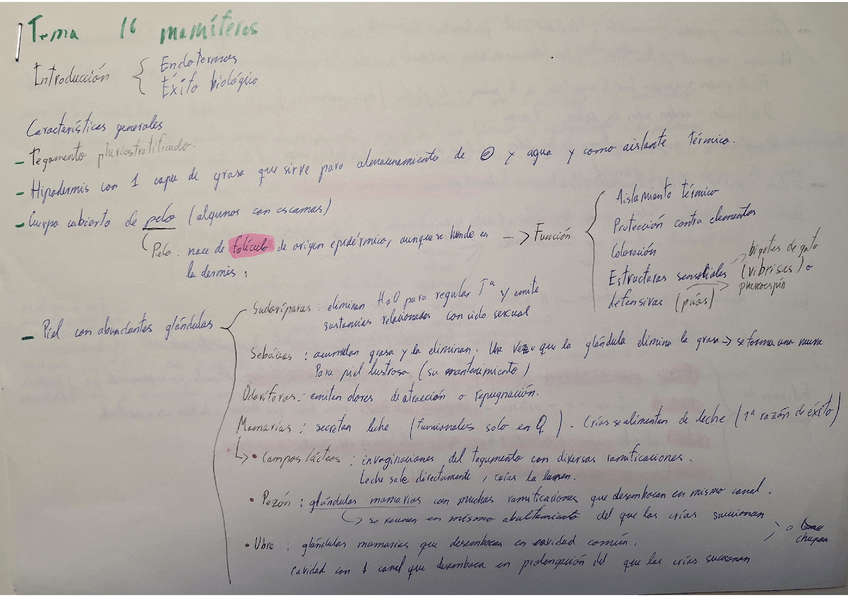 Tema 16 mamíferos
Introducción { Endotermos
Éxito biológico
Características generales
- Tegumento pluriestratificado.
- Hipodermis con 1 capa de grasa que sirve para almacenamiento de e y agua y como aislante térmico.
- Cuerpo cubierto de pelo (algunos con escamas)
Pelo: nace de folículo de origen epidérmico, aunque se hunde en
la dermis;
--> Función { Aislamiento térmico
Protección contra elementos
Coloración
Estructuras sensoriales (vibrisas) o
defensivas (púas)
bigotes de gato
puercoespín
- Piel con abundantes glándulas { Sudoríparas: eliminan H2O para regular Tª y emite
sustancias relacionadas con ciclo sexual
Sebáceas: acumulan grasa y la eliminan. Una vez que la glándula elimina la grasa → se forma una nueva
Para piel lustrosa (su mantenimiento)
Odoríferas: emiten olores de atracción o repugnación.
Mamarias: secretan leche (funcionales solo en ♀). Crías se alimentan de leche (1ª razón de éxito)
↳ • Campos lácteos: invaginaciones del tegumento con diversas ramificaciones.
Leche sale directamente, crías la lamen.
• Pezón: glándulas mamarias con muchas ramificaciones que desembocan en mismo canal.
↳ se reúnen en mismo abultamiento del que las crías succionan
• Ubre: glándulas mamarias que desembocan en cavidad común.
cavidad con 1 canal que desemboca en prolongación del que las crías succionan
o
chupan